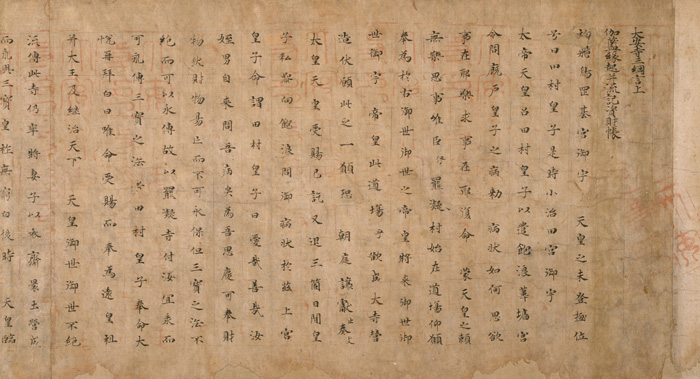 大安寺三綱言上
伽藍縁起并流記資財帳
初飛鳥岡基宮御宇　天皇之未登極位
号曰田村皇子是時小治田宮御宇
太帝天皇召田村皇子以遣飽浪葦墻宮
令問廐戸皇子之病勅　病状如何思欲
事在耶樂求事在耶復命　蒙天皇之頼
無樂思事唯臣伊羆凝村始在道場仰願
奉為於古御世御世之帝皇将来御世御
世御宇　帝皇此道場乎欲成大寺營
造伏願此之一願恐　朝庭讓獻止奏
太皇天皇受賜已訖又退三箇日間皇
子私參向飽浪問御病状於茲上宮
皇子命謂田村皇子曰愛哉善哉汝
姪男自来問吾病矣為吾思慶可奉財
物然財物易亡而不可永保但三寳之法不
絶而可以永傳故以羆凝寺付汝宜承而
可永傳三寳之法者田村皇子奉命大
悦再拜白曰唯命受賜而奉為遠皇祖
并大王及継治天下　天皇御世御世不絶
流傳此寺仍奉将妻子以衣齋裹土營成
而永興三寳皇祚無窮白後時　天皇臨